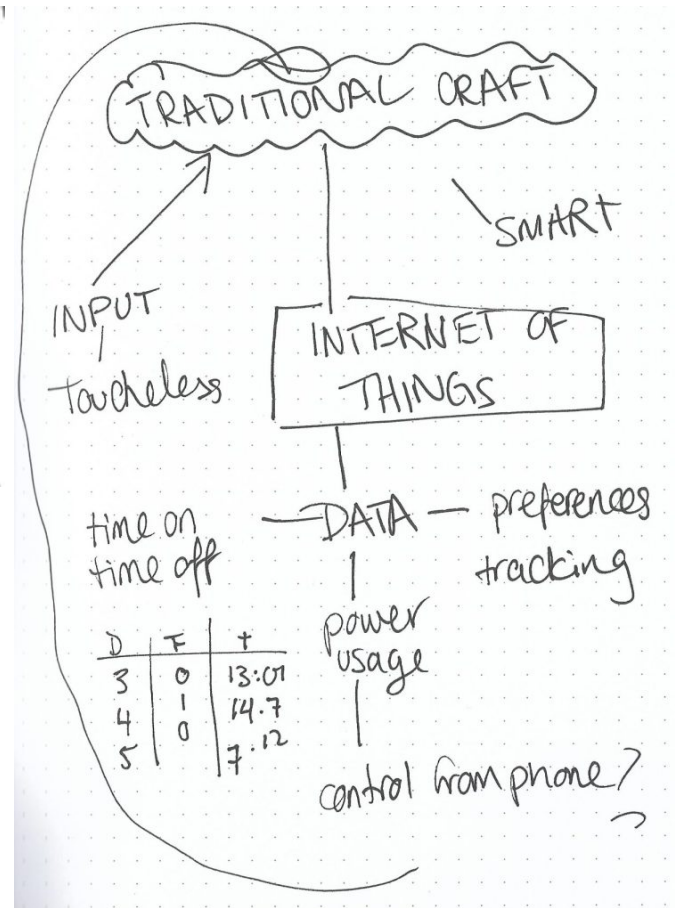 TRADITIONAL CRAFT
SMART
INPUT
Toucheless
INTERNET OF
THINGS
time on
time off
DATA
preferences
tracking
power
usage
D F t
3 0 13:01
4 1 14.7
5 0 7.12
control from phone?